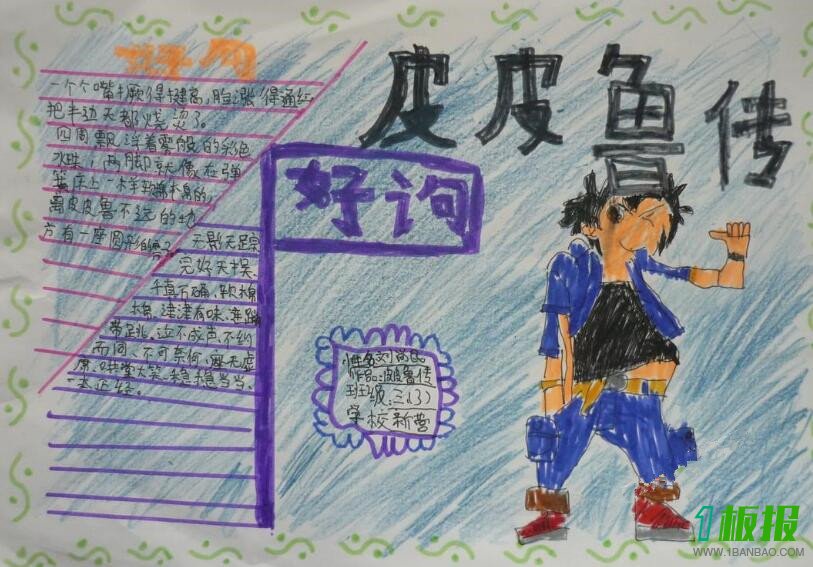 皮皮鲁传
好句
一个个嘴撅得撅高,脸涨得通红
把半边天都烧烫了。
四周飘浮着雾般的彩色
水珠,两脚就像在弹
簧床上一样软绵绵的,
离皮皮鲁不远的地
方有一座圆形的
好词
无影无踪
完好无损、
千真万确、软绵
绵、津津有味、连蹦
带跳、泣不成声、不约
而同、不可奈何、座无虚
席、哄堂大笑、稳稳当当、
一本正经。
姓名:刘
作品:皮皮鲁传
班级:三(3)
学校 新营
1板报
WWW.1BANBAO.COM